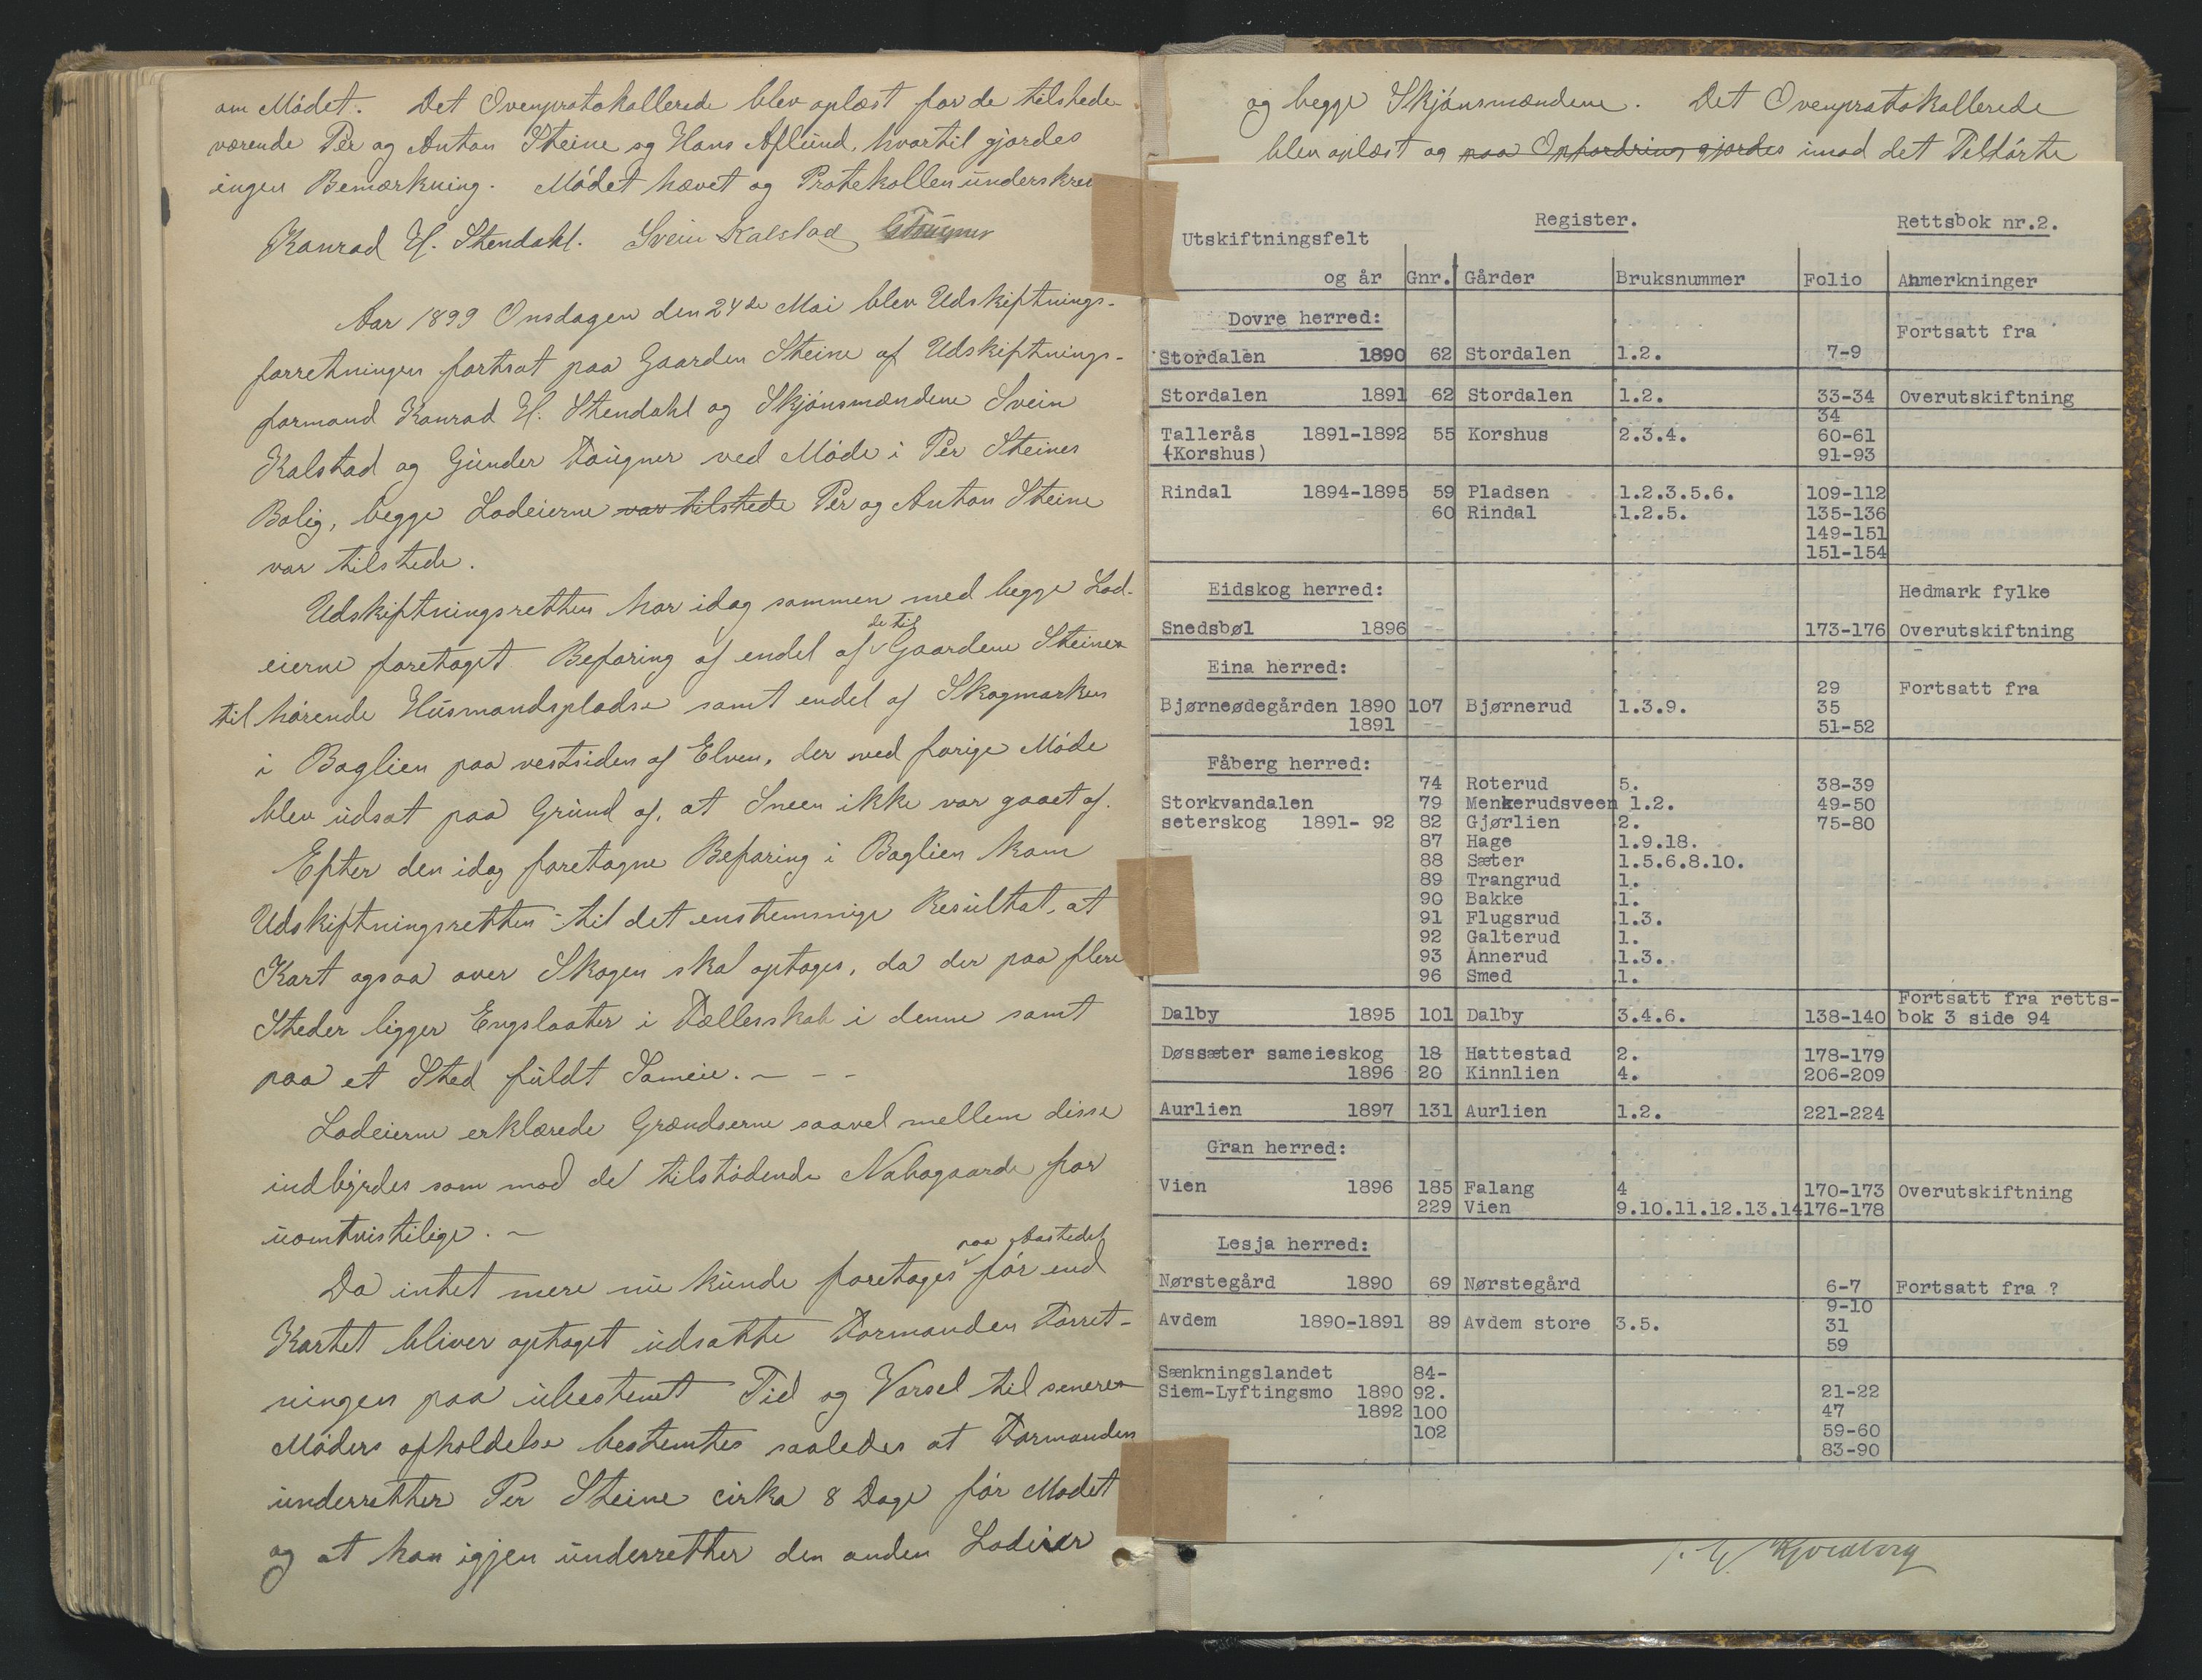 om Mødet. Det Ovenprotokollerede blev oplæst for de tilstede-
værende Per og Anton Steine og Hans Aflund, hvortil gjordes
ingen Bemærkning. Mødet hævet og Protokollen underskrev
Konrad H. Stendahl. Svein Kalstad GTougner
Aar 1899 Onsdagen den 24de Mai blev Udskiftnings-
forretningen fortsat paa Gaarden Steine af Udskiftnings-
formand Konrad H. Stendahl og Skjønsmændene Svein
Kalstad og Gunder Tougner ved Møde i Per Steines
Bolig, begge Lodeierne var tilstede Per og Anton Steine
var tilstede.
Udskiftningsretten har idag sammen med begge Lod-
eierne foretaget Befaring af endel af de til Gaardene Steine
til hørende Husmandspladse samt endel af Skogmarken
i Baglien paa vestsiden af Elven, der ved forige Møde
blev udsat paa Grund af, at Sneen ikke var gaaet af.
Efter den idag foretagne Befaring i Baglien kom
Udskiftningsretten til det enstemmige Resultat, at
Kart ogsaa over Skogen skal optages, da der paa flere
Steder ligger Engslaater i Fællesskab i denne samt
paa et Sted fuldt Sameie. - - -
Lodeierne erklærede Grændserne saavel mellem disse
indbyrdes som mod de tilstødende Nabogaarde for
uomtvistilige. -
Da intet mere nu kunde foretages paa Aastedet før end
Kartet bliver optaget udsatte Formanden Forret-
ningen paa ubestemt Tid og Varsel til senere
Møders afholdelse bestemtes saaledes at Formanden
underretter Per Steine cirka 8 Dage før Mødet
og at han igjen underretter den anden Lodeier
og begge Skjønsmændene. Det Ovenprotokollerede
blev oplæst og paa Opfordring gjordes imod det Tilførte
Register. Rettsbok nr.2.
Utskiftningsfelt
og år Gnr. Gårder Bruksnummer Folio Anmerkninger
Dovre herred: Fortsatt fra
Stordalen 1890 62 Stordalen 1.2. 7-9
Stordalen 1891 62 Stordalen 1.2. 33-34 Overutskiftning
34
Tallerås 1891-1892 55 Korshus 2.3.4. 60-61
(Korshus) 91-93
Rindal 1894-1895 59 Pladsen 1.2.3.5.6. 109-112
60 Rindal 1.2.5. 135-136
149-151
151-154
Eidskog herred: Hedmark fylke
Snedsbøl 1896 173-176 Overutskiftning
Eina herred:
29 Fortsatt fra
Bjørneødegården 1890 107 Bjørnerud 1.3.9. 35
1891 51-52
Fåberg herred:
74 Roterud 5. 38-39
Storkvandalen 79 Menkerudsveen 1.2. 49-50
seterskog 1891- 92 82 Gjørlien 2. 75-80
87 Hage 1.9.18.
88 Sæter 1.5.6.8.10.
89 Trangrud 1.
90 Bakke 1.
91 Flugsrud 1.3.
92 Galterud 1.
93 Ånnerud 1.3.
96 Smed 1.
Fortsatt fra retts-
Dalby 1895 101 Dalby 3.4.6. 138-140 bok 3 side 94
Døssæter sameieskog 18 Hattestad 2. 178-179
1896 20 Kinnlien 4. 206-209
Aurlien 1897 131 Aurlien 1.2. 221-224
Gran herred:
Vien 1896 185 Falang 4 170-173 Overutskiftning
229 Vien 9.10.11.12.13.14 176-178
Lesja herred:
Nørstegård 1890 69 Nørstegård 6-7 Fortsatt fra ?
9-10
Avdem 1890-1891 89 Avdem store 3.5. 31
59
Sænkningslandet 84-
Siem-Lyftingsmo 1890 92. 21-22
1892 100 47
102 59-60
83-90